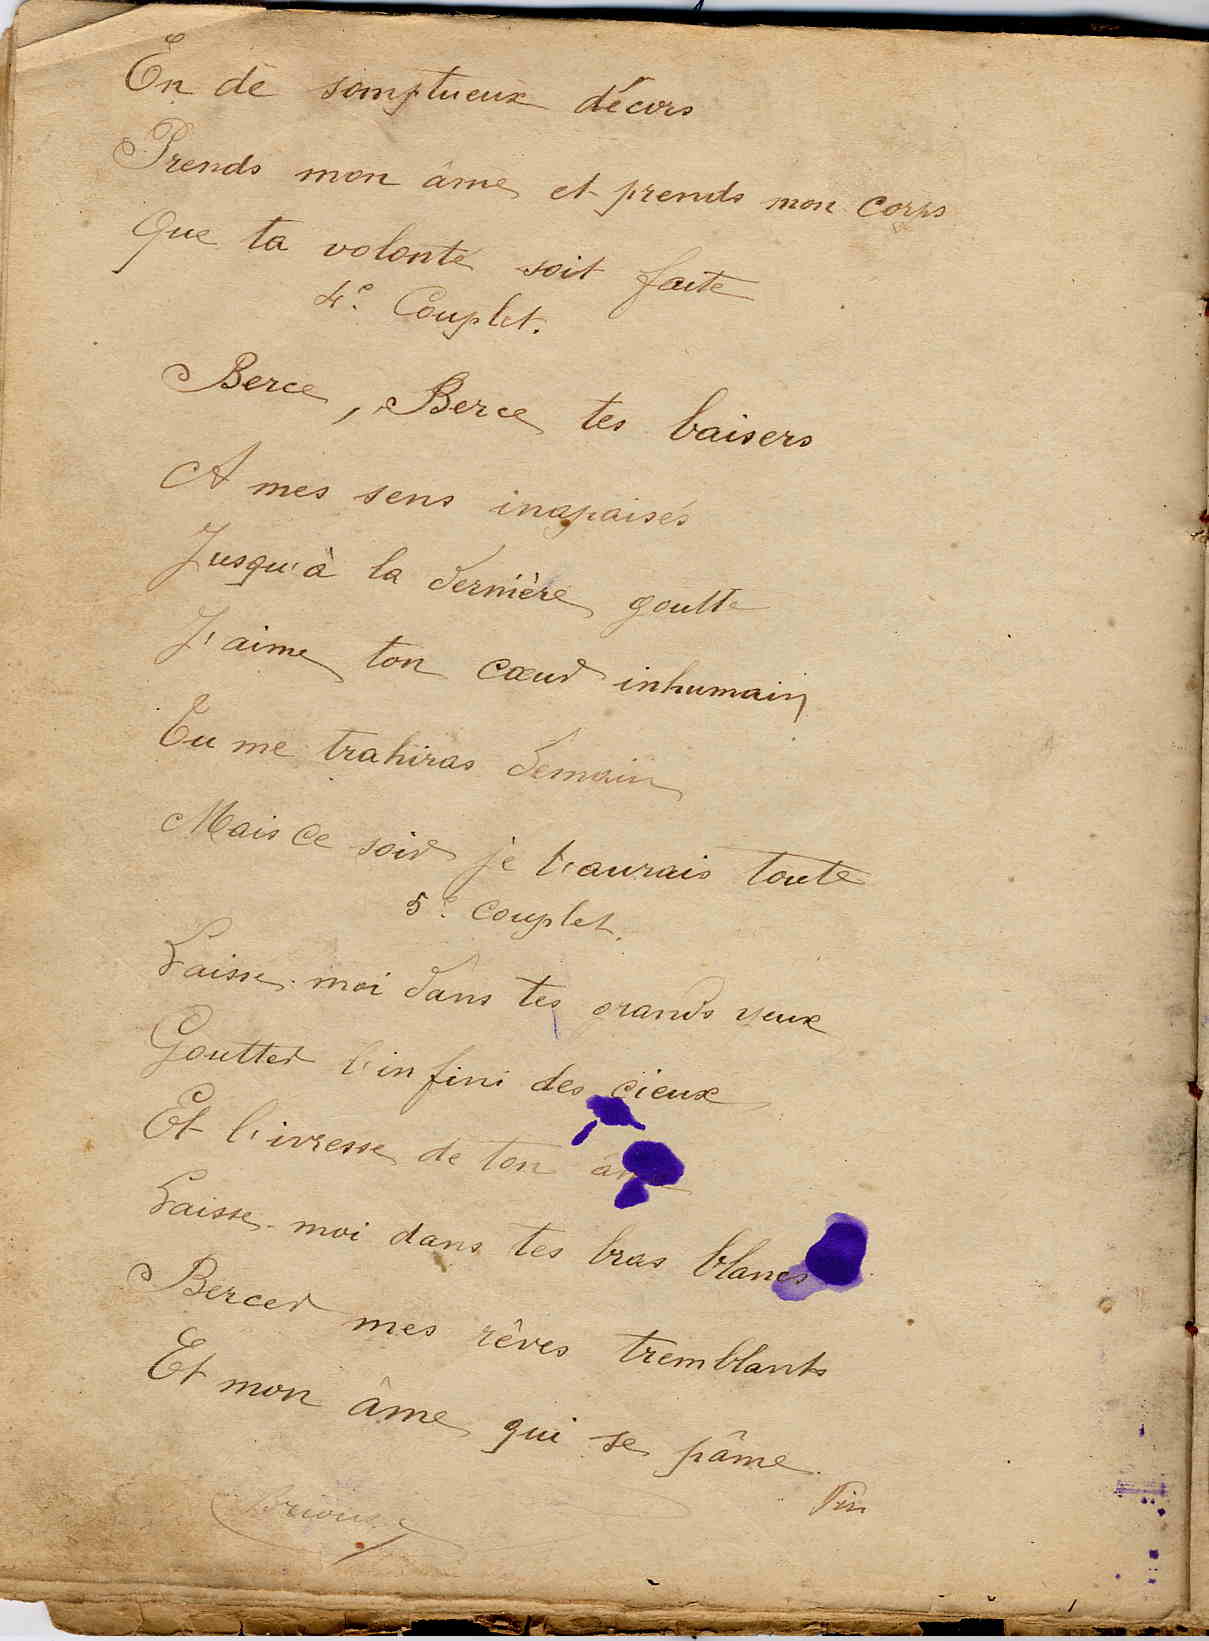 En de somptueux décors
Prends mon âme et prends mon corps
Que ta volonté soit faite
4e Couplet.
Berce, Berce tes baisers
A mes sens inapaisés
Jusqu'à la dernière goutte
J'aime ton cœur inhumain
Tu me trahiras demain
Mais ce soir je t'aurais toute
5e couplet.
Laisse-moi dans tes grands yeux
Goutter l'infini des cieux
Et l'ivresse de ton âme
Laisse-moi dans tes bras blancs
Bercer mes rêves tremblants
Et mon âme qui se pâme.
Fin